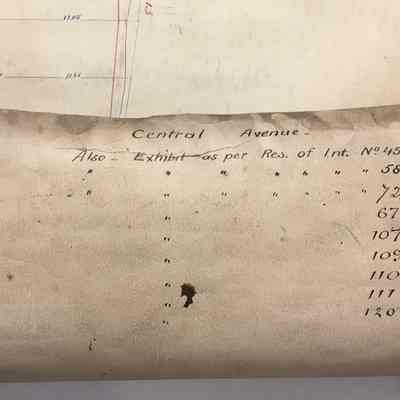 Central Avenue -
Also - Exhibit - as per Res. of Int. Nº 45
" " " " " " " 58
" " " " " " " 72
" 67
" 107
" 109
" 110
" 111
" 120